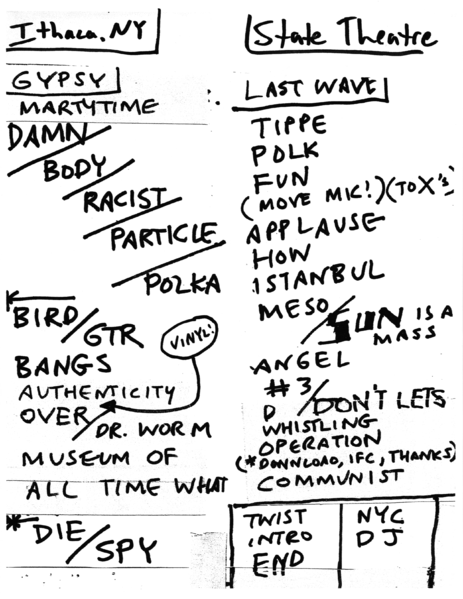 Ithaca, NY
GYPSY
MARTYTIME
DAMN
BODY
RACIST
PARTICLE
POLKA
BIRD/GTR
VINYL:
BANGS
AUTHENTICITY
OVER/DR. WORM
MUSEUM OF
ALL TIME WHAT
*DIE/SPY
State Theatre
LAST WAVE
TIPPE
POLK
FUN
(MOVE MIC!)(TO X's)
APPLAUSE
HOW
ISTANBUL
MESO/SUN IS A
MASS
ANGEL
#3
D/DON'T LETS
WHISTLING
OPERATION
(*DOWNLOAD, IFC, THANKS)
COMMUNIST
TWIST
INTRO
END
NYC
DJ